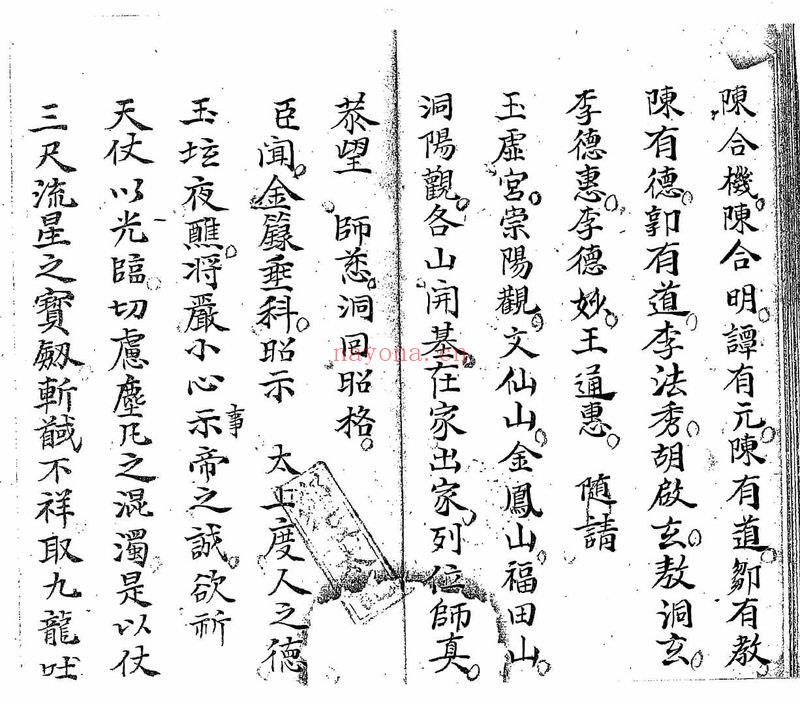 陳合機。陳合明。譚有元。陳有道。鄒有教。
陳有德。郭有道。李法秀。胡啟玄。敖洞玄。
李德惠。李德妙。王道惠。 随請
玉虛宮。崇陽觀。文仙山。金鳳山。福田山。
洞陽觀。各山開基。在家出家。列位師真。
恭望 師慈。洞回昭格。
臣聞。金籙垂科。昭示 太上度人之德
玉坛夜醮。将嚴小心示帝之誠。欲祈
事
天仗以光臨。切慮塵凡之混濁。是以仗
三尺流星之寶劔。斬馘不祥。取九龍吐
nayona.cn